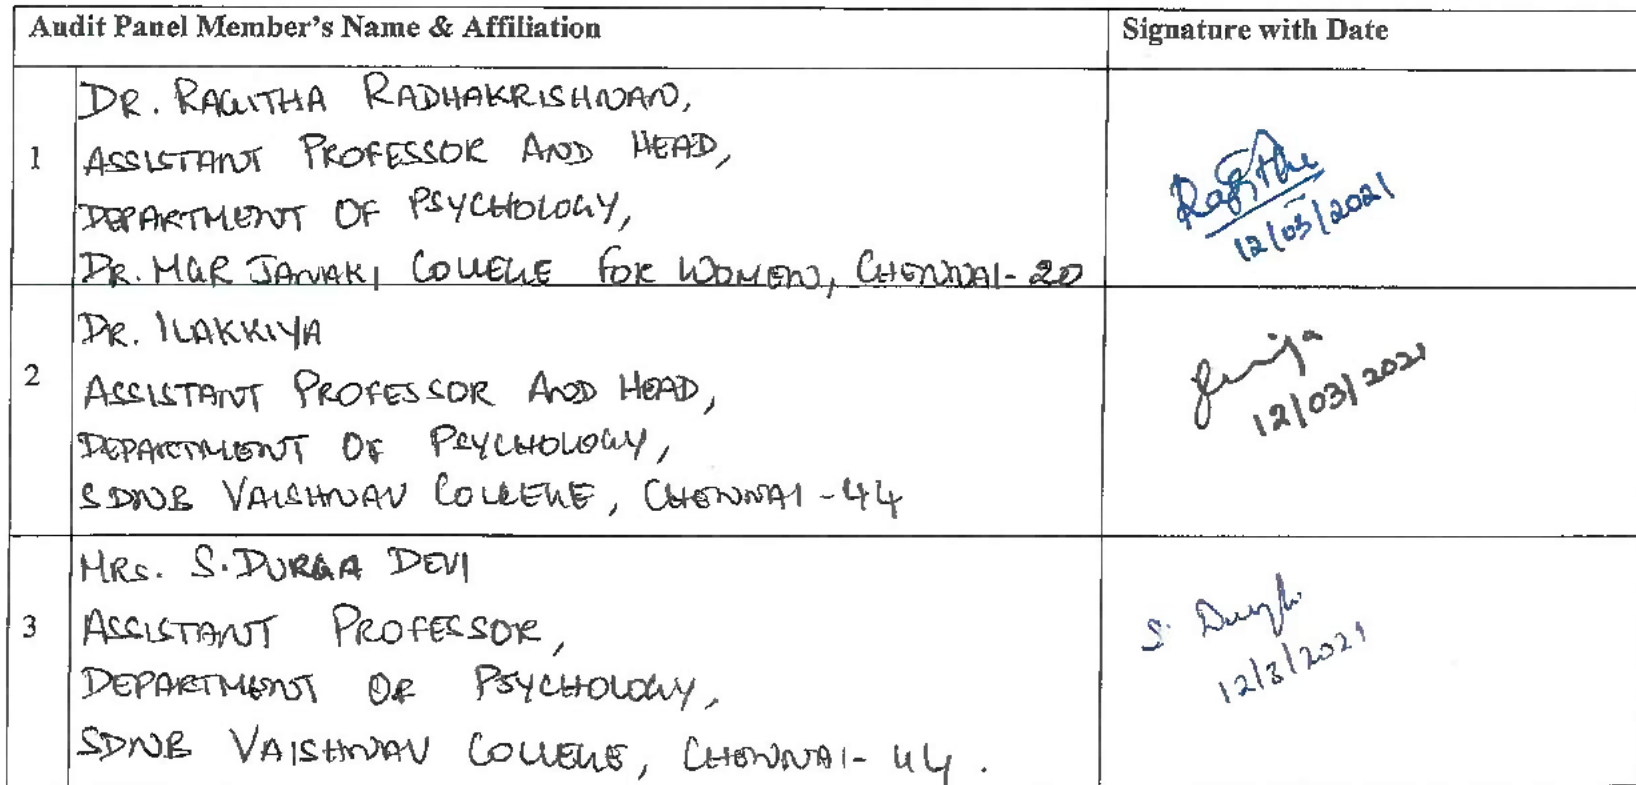 Audit Panel Member's Name & Affiliation
Signature with Date
1
DR. RAGITHA RADHAKRISHNAN,
ASSISTANT PROFESSOR AND HEAD,
DEPARTMENT OF PSYCHOLOGY,
DR. MGR JANAKI COLLEGE FOR WOMEN, CHENNAI-20
Ragitha
12/03/2021
2
DR. ILAKKIYA
ASSISTANT PROFESSOR AND HEAD,
DEPARTMENT OF PSYCHOLOGY,
SDNB VAISHNAV COLLEGE, CHENNAI-44
12/03/2021
3
MRS. S.DURGA DEVI
ASSISTANT PROFESSOR,
DEPARTMENT OF PSYCHOLOGY,
SDNB VAISHNAV COLLEGE, CHENNAI-44.
S. Durga
12/3/2021